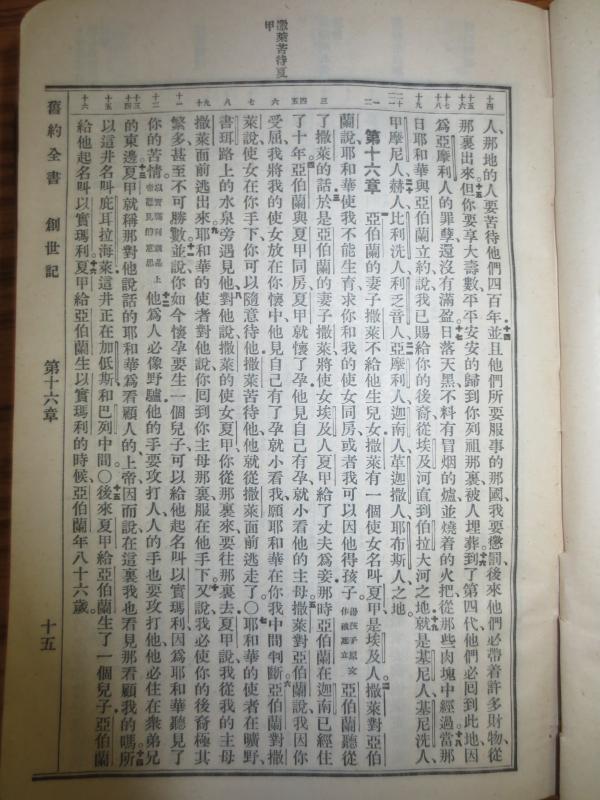 撒萊苦待夏甲
人、那地的人要苦待他們四百年、並且他們所要服事的那國、我要懲罰、後來他們必帶着許多財物、從
那裏出來、但你要享大壽數、平平安安的歸到你列祖那裏、被人埋葬、到了第四代、他們必囘到此地、因
為亞摩利人的罪孽、還沒有滿盈。日落天黑、不料有冒烟的爐、並燒着的火把、從那些肉塊中經過、當那
日耶和華與亞伯蘭立約、說、我已賜給你的後裔、從埃及河直到伯拉大河之地、就是基尼人、基尼洗人、
甲摩尼人、赫人、比利洗人、利乏音人、亞摩利人、迦南人、革迦撒人、耶布斯人之地。
第十六章 亞伯蘭的妻子撒萊不給他生兒女、撒萊有一個使女名叫夏甲、是埃及人、撒萊對亞伯
蘭說、耶和華使我不能生育、求你和我的使女同房、或者我可以因他得孩子、得孩子原文作被建立 亞伯蘭聽從
了撒萊的話、於是亞伯蘭的妻子撒萊、將使女埃及人夏甲給了丈夫為妾、那時亞伯蘭在迦南已經住
了十年。亞伯蘭與夏甲同房、夏甲就懷了孕、他見自己有孕、就小看他的主母。撒萊對亞伯蘭說、我因你
受屈、我將我的使女放在你懷中、他見自己有了孕就小看我、願耶和華在你我中間判斷。亞伯蘭對撒
萊說、使女在你手下、你可以隨意待他、撒萊苦待他、他就從撒萊面前逃走了。〇耶和華的使者在曠野
書珥路上的水泉旁遇見他、對他說、撒萊的使女夏甲、你從那裏來、要往那裏去、夏甲說、我從我的主母
撒萊面前逃出來。耶和華的使者對他說、你囘到你主母那裏、服在他手下、又說、我必使你的後裔極其
繁多、甚至不可勝數、並說、你如今懷孕要生一個兒子、可以給他起名叫以實瑪利、因為耶和華聽見了
你的苦情。以實瑪利就是上帝聽見的意思 他為人必像野驢、他的手要攻打人、人的手也要攻打他、他必住在衆弟兄
的東邊。夏甲就稱那對他說話的耶和華為看顧人的上帝、因而說、在這裏我也看見那看顧我的嗎、所
以這井名叫庇耳拉海萊、這井正在加低斯和巴列中間。〇後來夏甲給亞伯蘭生了一個兒子、亞伯蘭
給他起名叫以實瑪利。夏甲給亞伯蘭生以實瑪利的時候、亞伯蘭年八十六歲。
舊約全書 創世記 第十六章 十五